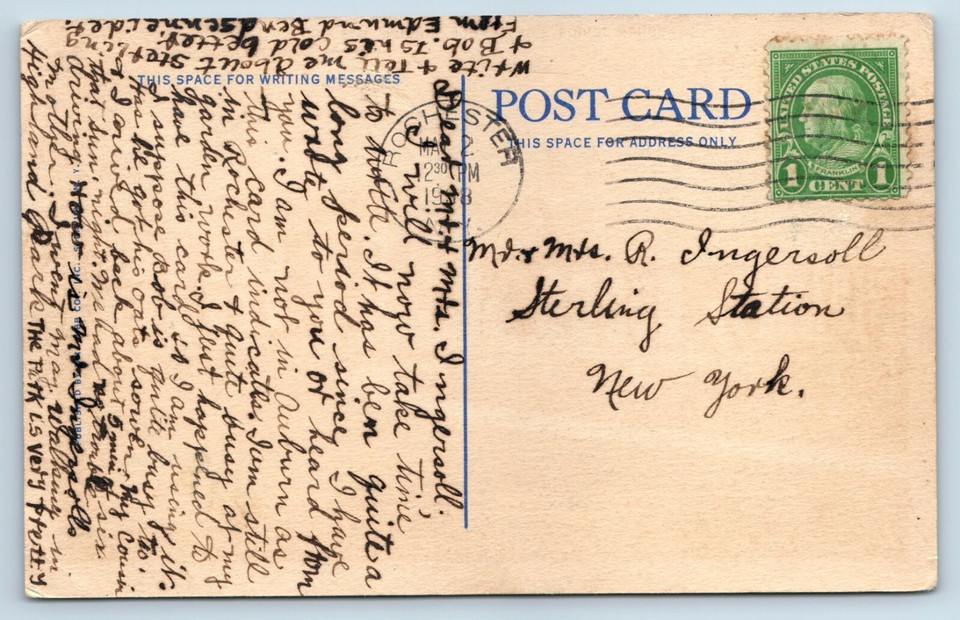 THIS SPACE FOR WRITING MESSAGES
POST CARD
THIS SPACE FOR ADDRESS ONLY
UNITED STATES POSTAGE
FRANKLIN
1 CENT 1
ROCHESTER
2
12 30 PM
Mr. & Mrs. R. Ingersoll
Sterling Station
New York.
Dear Mr. & Mrs. Ingersoll;
I will now take time
to write. It has been quite a
long period since I have
wrote to you or heard from
you. I am not in Auburn as
this card indicates. I am still
in Rochester & quite busy at my
garden work. I just happened to
have this card so I am using it.
I suppose Bob is quite busy to.
Has he got his oats sown.
I arrived back about 5 min. six
that sun. night. Me and my cousin
driving
Mother. I went
in
Highland Park. The Park is very pretty
write & tell me about Sterling
& Bob. Is his cold better.
From Edmund